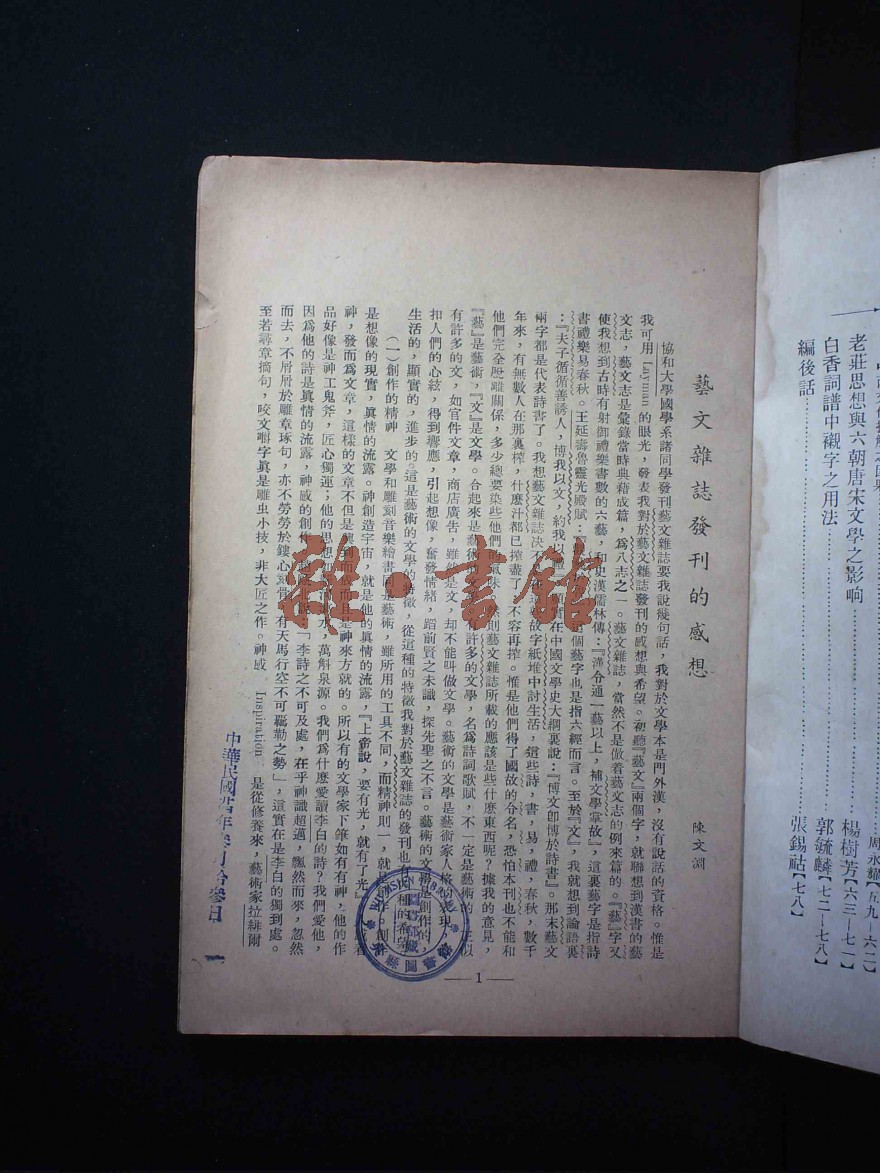 老莊思想與六朝唐宋文學之影响 楊樹芳【六三—七一】
白香詞譜中襯字之用法 郭毓麟【七二—七八】
編後話 張錫祜【七八】
藝文雜誌發刊的感想
陳文淵
協和大學國學系諸同學發刊藝文雜誌要我說幾句話，我對於文學本是門外漢，沒有說話的資格。惟是
我可用 Layman 的眼光，發表我對於藝文雜誌發刊的感想與希望。初聽『藝文』兩個字，就聯想到漢書的藝
文志，藝文志是彙錄當時典藉成篇，爲八志之一。藝文雜誌，當然不是倣着藝文志的例來篇的。『藝』字又
使我想到古時有射御禮樂書數的六藝，和史漢儒林傳：『能通一藝以上，補文學掌故』，這裏藝字是指詩
書禮樂易春秋。王延壽魯靈光殿賦：『 是個藝字也是指六經而言。至於『文』，我就想到論語裏
：『夫子循循善誘人，博我以文，約我以 在中國文學史大綱裏說：『博文卽博於詩書』。那末藝文
兩字都是代表詩書了。我想藝文雜誌决不 故字紙堆中討生活，這些詩，書，易，禮，春秋，數千
年來，有無數人在那裏榨，什麽汁都已搾盡了，不容再搾。惟是他們得了國故的合名，恐怕本刊也不能和
他們完全脫離關係，多少總要染些他們的氣味。然則藝文雜誌所載的應該是些什麼東西呢？據我的意見，
『藝』是藝術，『文』是文學。合起來是藝術的文 有許多的文學，名爲詩詞歌賦，不一定是藝術的。正似
有許多的文，如官件文章，商店廣告，雖然是文，却不能叫做文學。藝術的文學是藝術家人格的表現，
扣人們的心絃，得到響應，引起想像，奮發情緒，蹈前賢之未識，探先聖之不言。藝術的文學是創作的，
生活的，顯實的，進步的。這是藝術的文學的特徵，從這種的特徵我對於藝文雜誌的發刊也有 種的希望
(一)創作的精神 文學和雕刻音樂繪畫同是藝術，雖所用的工具不同，而精神則一，就是創作。創作
是想像的現實，眞情的流露。神創造宇宙，就是他的眞情的流露，『上帝說，要有光，就有了光』
神，發而爲文章，這樣的文章不但是 到 而且是神來方就的。所以有的文學家下筆如有神，他的作
品好像是神工鬼斧，匠心獨運；他的思想如 ，萬斛泉源。我們爲什麼愛讀李白的詩？我們愛他
因爲他的詩是眞情的流露，神感的創作 「李詩之不可及處，在乎神識超邁，飄然而來，忽然
而去，不屑屑於雕章琢句，亦不勞勞於鏤心刻骨，自有天馬行空不可羈勒之勢」，這實在是李白的獨到處。
至若尋章摘句，咬文嚼字眞是雕虫小技，非大匠之作。神感 Inspiration 是從修養來，藝術家拉緋爾
—1—
中華民國 年 月拾叄日
雜·書館